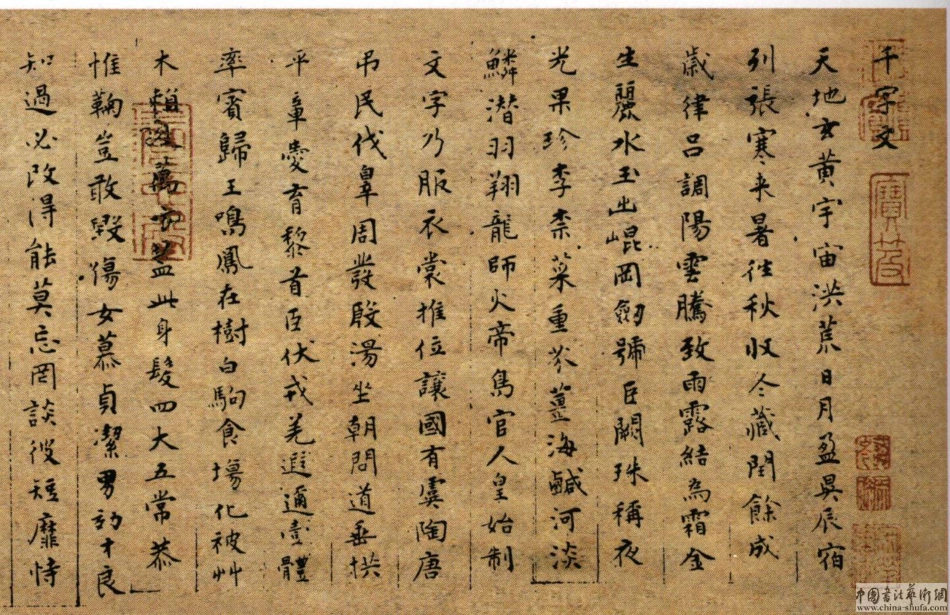 千字文
天地玄黄宇宙洪荒日月盈昃辰宿
列張寒来暑往秋収冬藏閏餘成
歳律呂調陽雲騰致雨露結為霜金
生麗水玉出崐岡劒號巨闕珠稱夜
光果珍李柰菜重芥薑海鹹河淡
鱗潜羽翔龍師火帝鳥官人皇始制
文字乃服衣裳推位讓國有虞陶唐
吊民伐辠周發殷湯坐朝問道垂拱
平章愛育黎首臣伏戎羌遐邇壹體
率賓歸王鳴鳳在樹白駒食場化被艸
木賴及萬方蓋此身髮四大五常恭
惟鞠豈敢毀傷女慕貞潔男効才良
知過必改得能莫忘罔談彼短靡恃
中國書法藝術網
www.china-shufa.com